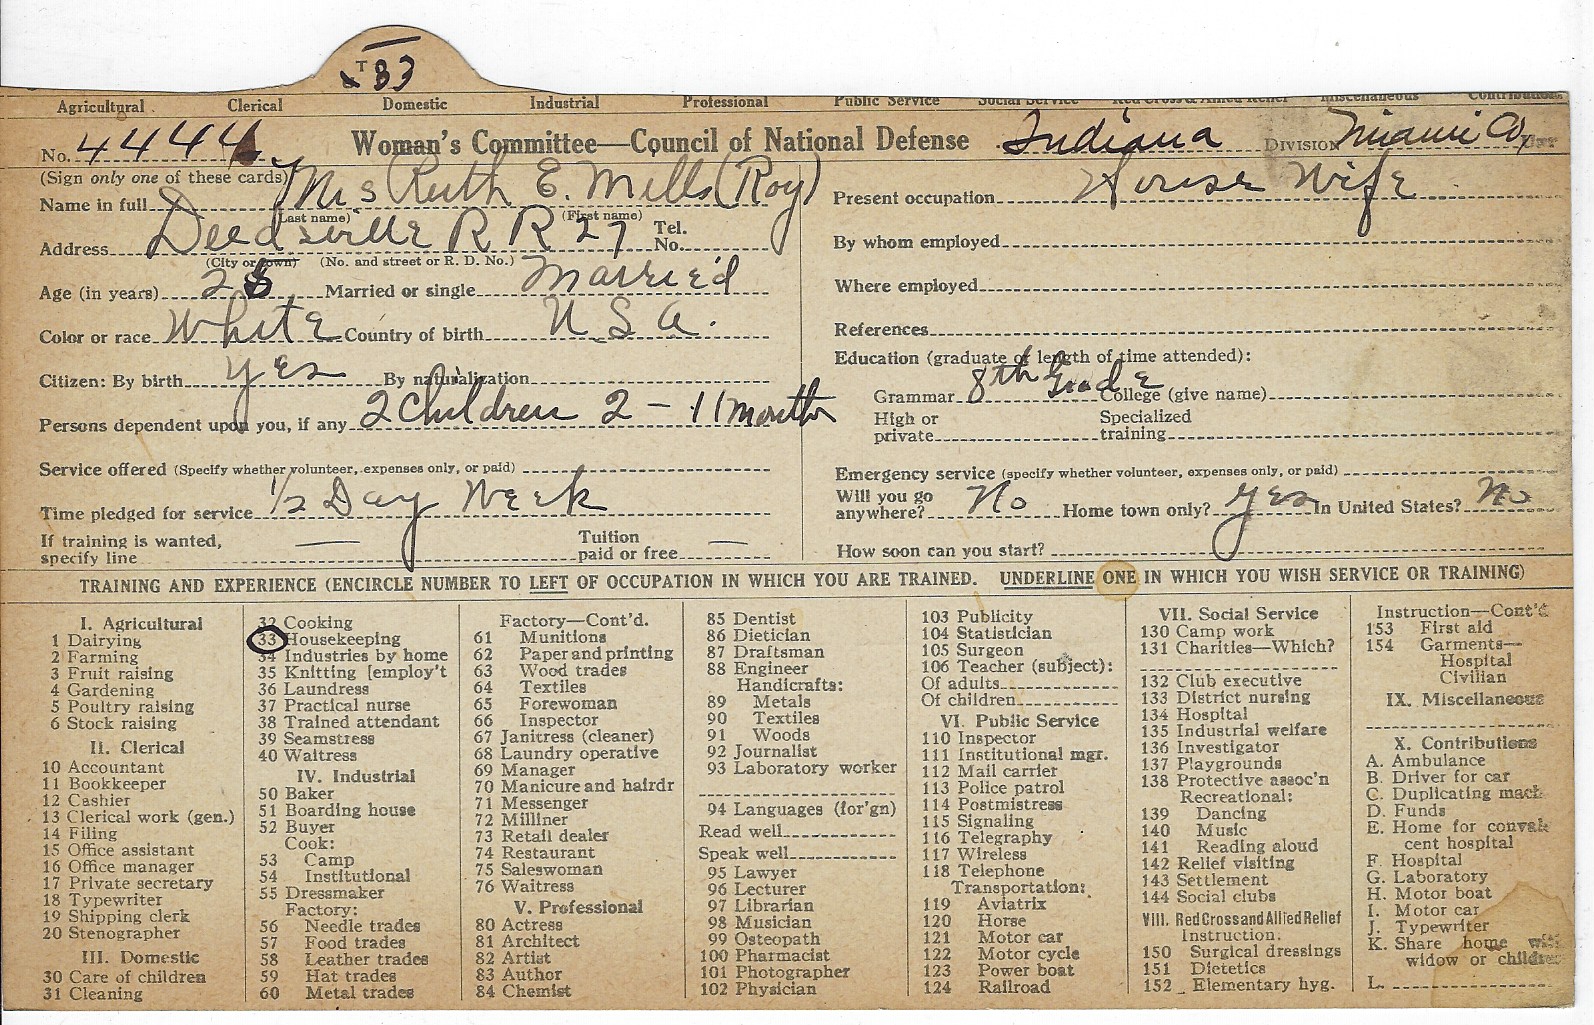 T 33
Agricultural Clerical Domestic Industrial Professional Public Service Social Service Red Cross & Allied Relief Miscellaneous Contributions
No. 4444 Woman's Committee—Council of National Defense Indiana DIVISION Miami Co,
(Sign only one of these cards)
Name in full Mrs Ruth E. Mills (Roy)
(Last name) (First name)
Address Deedsville R R 27 Tel. No.
(City or town) (No. and street or R. D. No.)
Age (in years) 28 Married or single Married
Color or race White Country of birth U.S.A.
Citizen: By birth Yes By naturalization
Persons dependent upon you, if any 2 Children 2 - 11 months
Service offered (Specify whether volunteer, expenses only, or paid)
Time pledged for service 1/2 Day Week
If training is wanted, specify line — Tuition paid or free —
Present occupation House Wife
By whom employed
Where employed
References
Education (graduate or length of time attended):
Grammar 8th Grade College (give name)
High or private Specialized training
Emergency service (specify whether volunteer, expenses only, or paid)
Will you go anywhere? No Home town only? Yes In United States? No
How soon can you start?
TRAINING AND EXPERIENCE (ENCIRCLE NUMBER TO LEFT OF OCCUPATION IN WHICH YOU ARE TRAINED. UNDERLINE ONE IN WHICH YOU WISH SERVICE OR TRAINING)
I. Agricultural
1 Dairying
2 Farming
3 Fruit raising
4 Gardening
5 Poultry raising
6 Stock raising
II. Clerical
10 Accountant
11 Bookkeeper
12 Cashier
13 Clerical work (gen.)
14 Filing
15 Office assistant
16 Office manager
17 Private secretary
18 Typewriter
19 Shipping clerk
20 Stenographer
III. Domestic
30 Care of children
31 Cleaning
32 Cooking
33 Housekeeping
34 Industries by home
35 Knitting [employ't
36 Laundress
37 Practical nurse
38 Trained attendant
39 Seamstress
40 Waitress
IV. Industrial
50 Baker
51 Boarding house
52 Buyer
Cook:
53 Camp
54 Institutional
55 Dressmaker
Factory:
56 Needle trades
57 Food trades
58 Leather trades
59 Hat trades
60 Metal trades
Factory—Cont'd.
61 Munitions
62 Paper and printing
63 Wood trades
64 Textiles
65 Forewoman
66 Inspector
67 Janitress (cleaner)
68 Laundry operative
69 Manager
70 Manicure and hairdr
71 Messenger
72 Milliner
73 Retail dealer
74 Restaurant
75 Saleswoman
76 Waitress
V. Professional
80 Actress
81 Architect
82 Artist
83 Author
84 Chemist
85 Dentist
86 Dietician
87 Draftsman
88 Engineer
Handicrafts:
89 Metals
90 Textiles
91 Woods
92 Journalist
93 Laboratory worker
94 Languages (for'gn)
Read well
Speak well
95 Lawyer
96 Lecturer
97 Librarian
98 Musician
99 Osteopath
100 Pharmacist
101 Photographer
102 Physician
103 Publicity
104 Statistician
105 Surgeon
106 Teacher (subject):
Of adults
Of children
VI. Public Service
110 Inspector
111 Institutional mgr.
112 Mail carrier
113 Police patrol
114 Postmistress
115 Signaling
116 Telegraphy
117 Wireless
118 Telephone
Transportation:
119 Aviatrix
120 Horse
121 Motor car
122 Motor cycle
123 Power boat
124 Railroad
VII. Social Service
130 Camp work
131 Charities—Which?
132 Club executive
133 District nursing
134 Hospital
135 Industrial welfare
136 Investigator
137 Playgrounds
138 Protective assoc'n
Recreational:
139 Dancing
140 Music
141 Reading aloud
142 Relief visiting
143 Settlement
144 Social clubs
VIII. Red Cross and Allied Relief
Instruction:
150 Surgical dressings
151 Dietetics
152 Elementary hyg.
Instruction—Cont'd
153 First aid
154 Garments—
Hospital
Civilian
IX. Miscellaneous
X. Contributions
A. Ambulance
B. Driver for car
C. Duplicating mach
D. Funds
E. Home for conval
cent hospital
F. Hospital
G. Laboratory
H. Motor boat
I. Motor car
J. Typewriter
K. Share home with
widow or children
L.